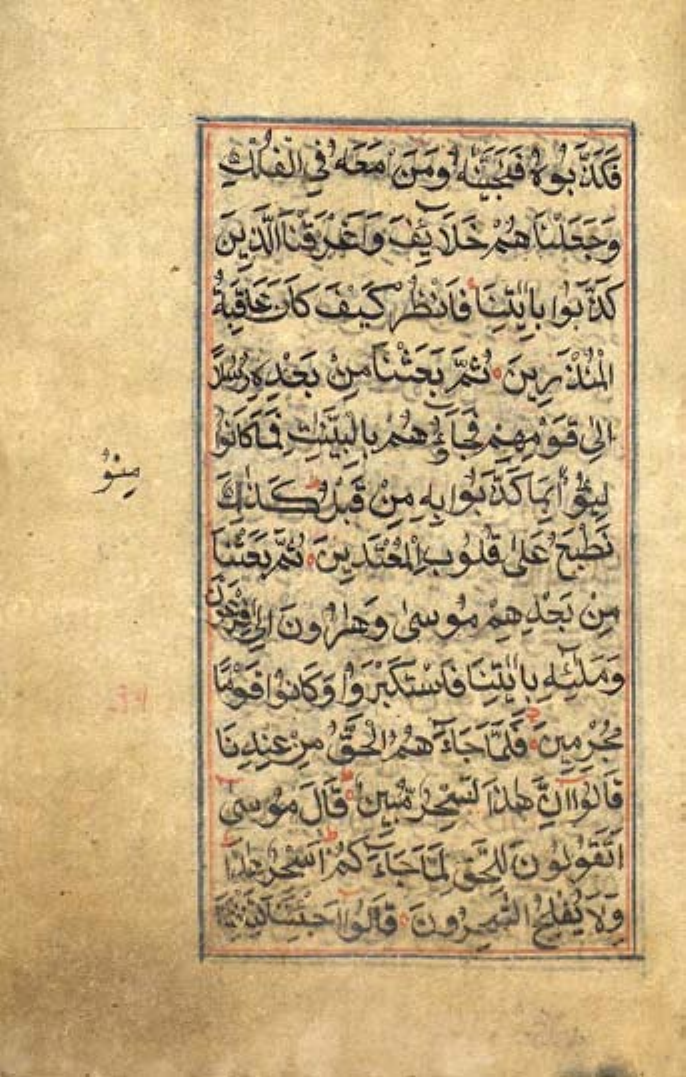 فَكَذَّبُوهُ فَنَجَّيْنٰهُ وَمَنْ مَعَهُ فِي الْفُلْكِ
وَجَعَلْنَا هُمْ خَلَائِفَ وَاَغْرَقْنَا الَّذِينَ
كَذَّبُوا بِاٰيٰتِنَا فَانْظُرْ كَيْفَ كَانَ عَاقِبَةُ
الْمُنْذَرِينَ ثُمَّ بَعَثْنَا مِنْ بَعْدِهِ رُسُلًا
اِلٰى قَوْمِهِمْ فَجَاؤُ هُمْ بِالْبَيِّنٰتِ فَمَا كَانُوا
لِيُؤْ بِمَا كَذَّبُوا بِهِ مِنْ قَبْلُ كَذٰلِكَ
نَطْبَعُ عَلٰى قُلُوبِ الْمُعْتَدِينَ ثُمَّ بَعَثْنَا
مِنْ بَعْدِهِمْ مُوسٰى وَهٰرُونَ اِلٰى فِرْعَوْنَ
وَمَلَئِهِ بِاٰيٰتِنَا فَاسْتَكْبَرُوا وَكَانُوا قَوْمًا
مُجْرِمِينَ فَلَمَّا جَاءَ هُمُ الْحَقُّ مِنْ عِنْدِنَا
قَالُوا اِنَّ هٰذَا لَسِحْرٌ مُبِينٌ قَالَ مُوسٰى
اَتَقُولُونَ لِلْحَقِّ لَمَّا جَاءَ كُمْ اَسِحْرٌ هٰذَا
وَلَا يُفْلِحُ السّٰحِرُونَ قَالُوا اَجِئْتَنَا
مِنُو